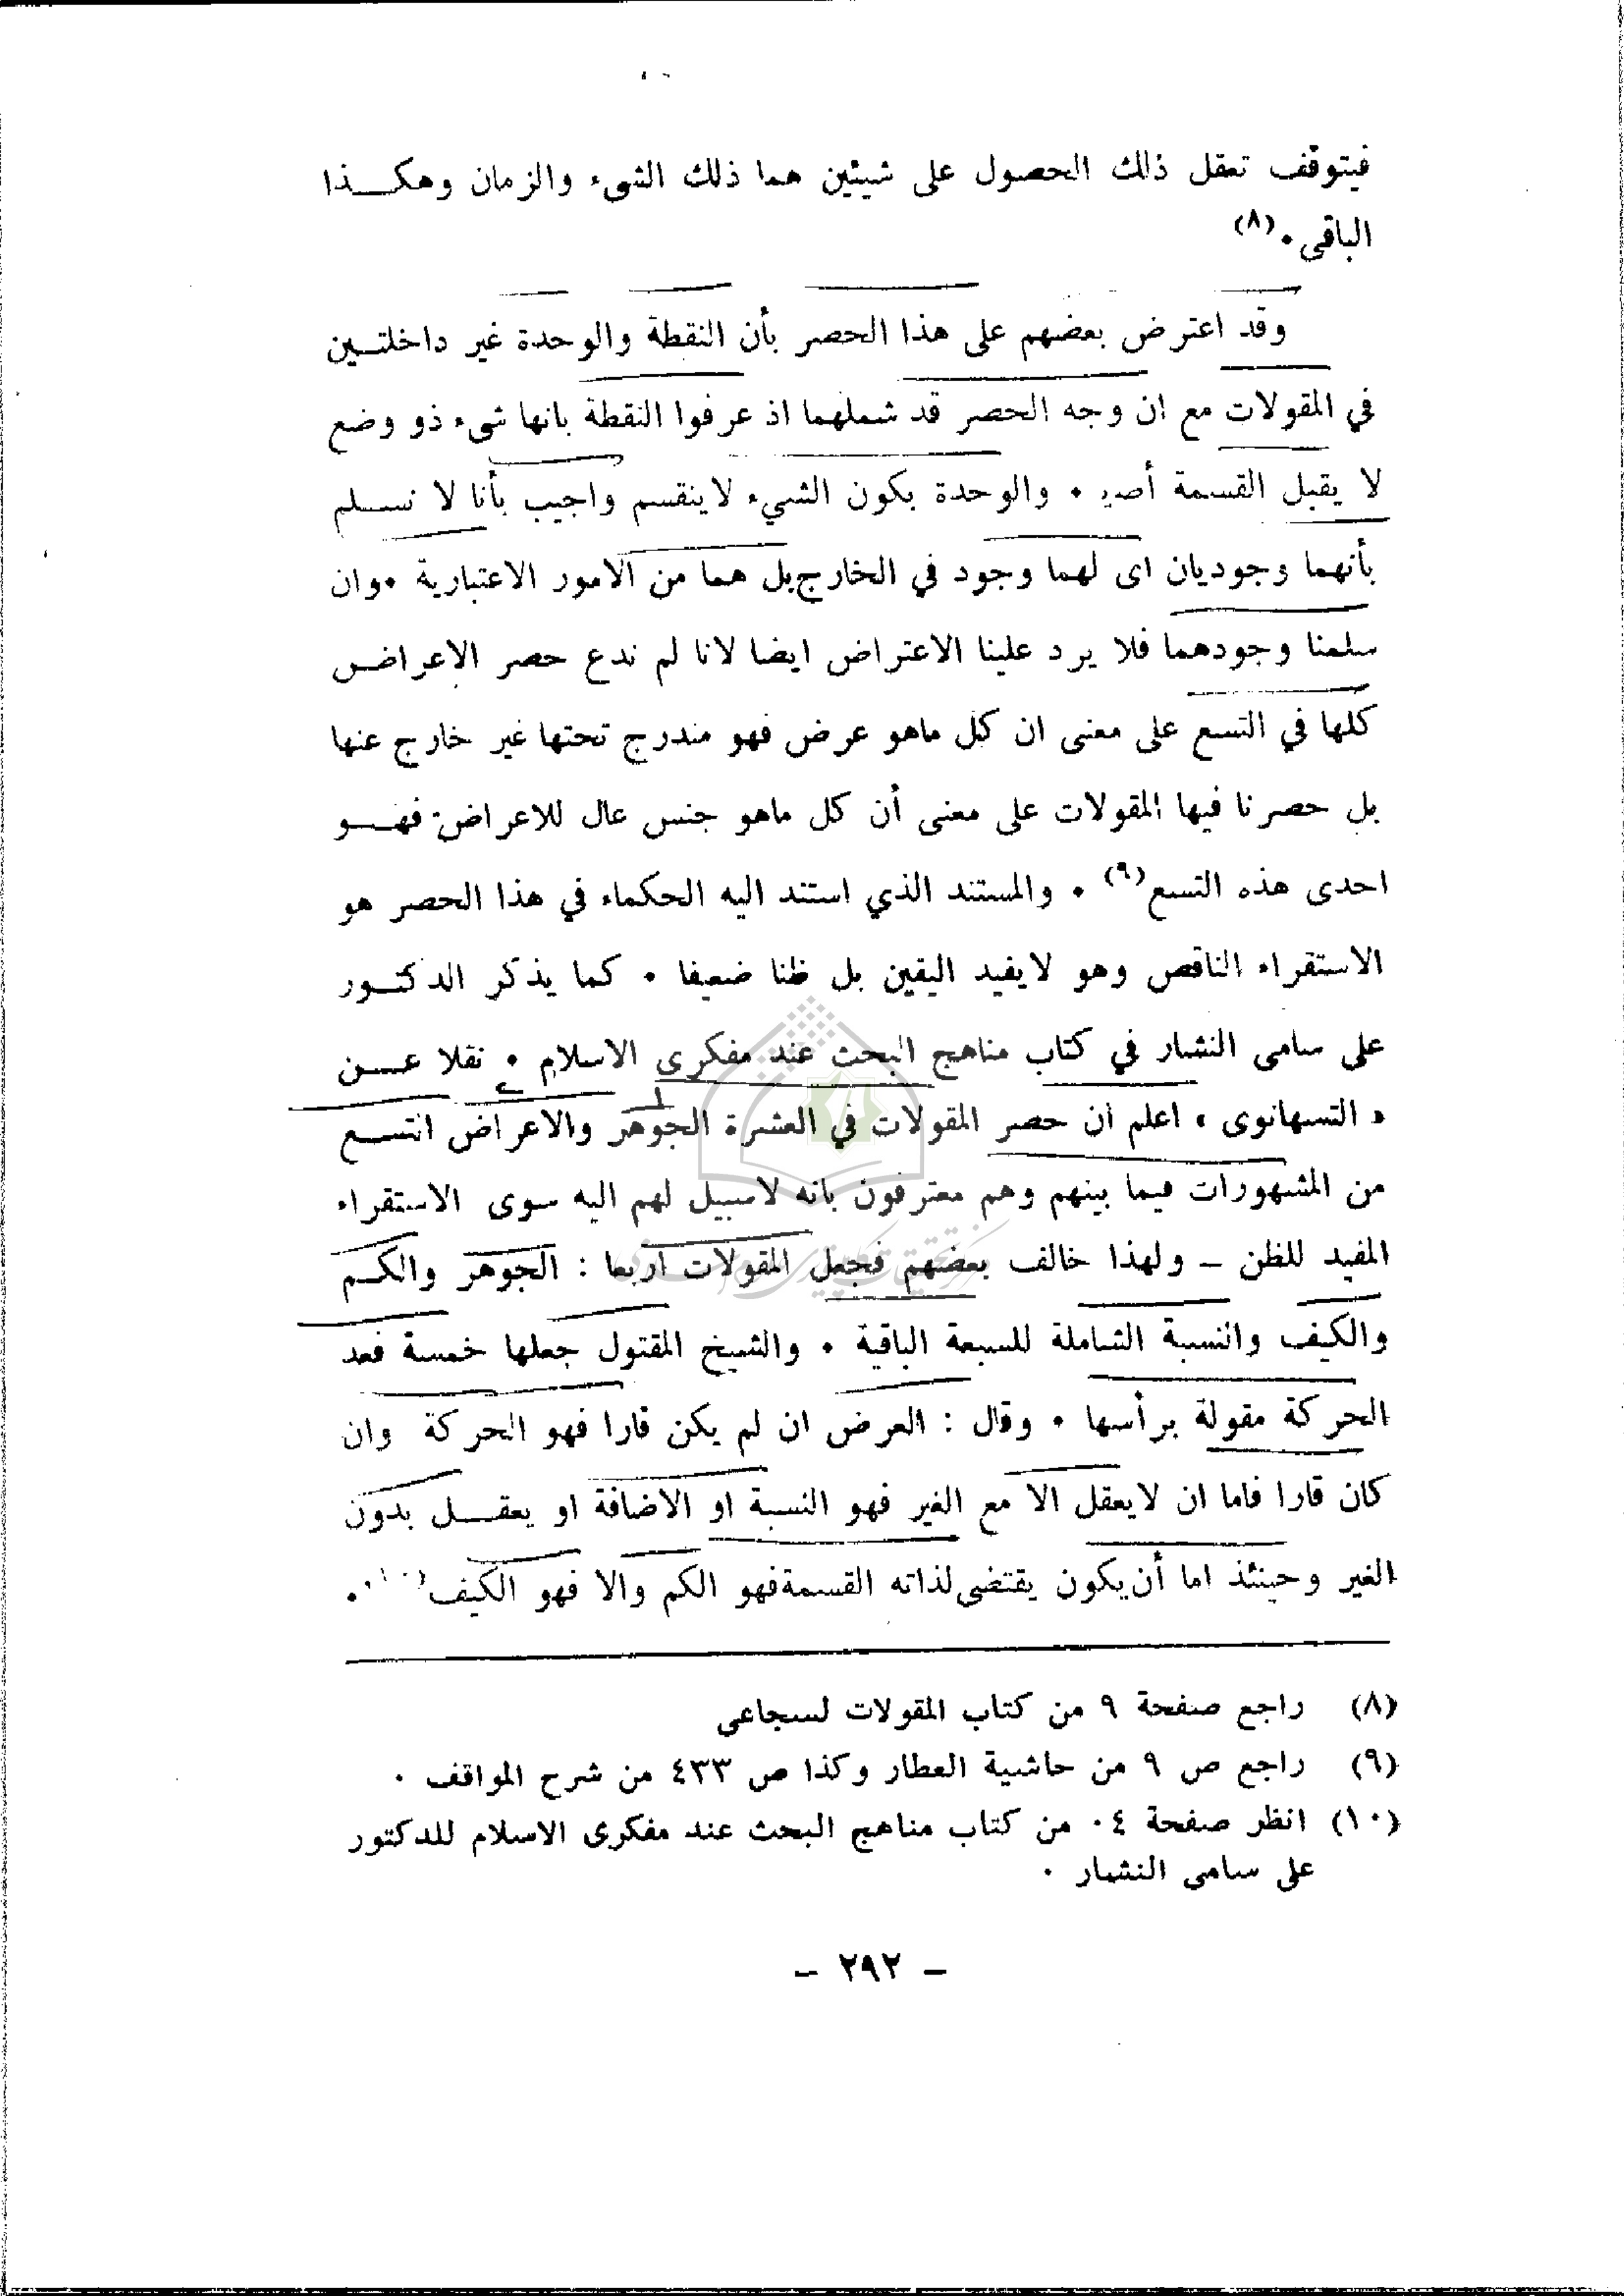 فيتوقف تعقل ذلك الحصول على شيئين هما ذلك الشىء والزمان وهكـــذا
الباقى .(٨)
وقد اعترض بعضهم على هذا الحصر بأن النقطة والوحدة غير داخلتــين
في المقولات مع ان وجه الحصر قد شملهما اذ عرفوا النقطة بانها شىء ذو وضع
لا يقبل القسمة . والوحدة بكون الشيء لاينقسم واجيب بأنا لا نســلم
بأنهما وجوديان اى لهما وجود في الخارج بل هما من الامور الاعتبارية . وان
سلمنا وجودهما فلا يرد علينا الاعتراض ايضا لانا لم ندع حصر الاعراض
كلها في التسع على معنى ان كل ماهو عرض فهو مندرج تحتها غير خارج عنها
بل حصرنا فيها المقولات على معنى أن كل ماهو جنس عال للاعراض فهـــو
احدى هذه التسع(٩) . والمستند الذي استند اليه الحكماء في هذا الحصر هو
الاستقراء الناقص وهو لايفيد اليقين بل ظنا ضعيفا . كما يذكر الدكتــور
على سامى النشار في كتاب مناهج البحث عند مفكرى الاسلام . نقلا عـــن
« التسهانوى » اعلم ان حصر المقولات في العشرة الجوهر والاعراض التســع
من المشهورات فيما بينهم وهم معترفون بانه لاسبيل لهم اليه سوى الاستقراء
المفيد للظن – ولهذا خالف بعضهم فجعل المقولات اربعا : الجوهر والكــم
والكيف والنسبة الشاملة للسبعة الباقية . والشيخ المقتول جعلها خمسة فعد
الحركة مقولة برأسها . وقال : العرض ان لم يكن قارا فهو الحركة وان
كان قارا فاما ان لايعقل الا مع الغير فهو النسبة او الاضافة او يعقـــل بدون
الغير وحينئذ اما أن يكون يقتضى لذاته القسمة فهو الكم والا فهو الكيف(١٠) .
(٨) راجع صفحة ٩ من كتاب المقولات لسجاعى
(٩) راجع ص ٩ من حاشية العطار وكذا ص ٤٣٣ من شرح المواقف .
(١٠) انظر صفحة ٠٤ من كتاب مناهج البحث عند مفكرى الاسلام للدكتور
على سامى النشار .
– ٢٩٢ –